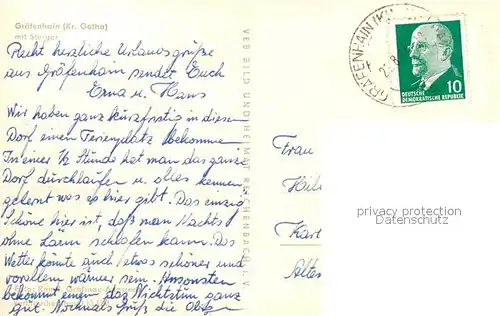 Gräfenhain (Kr. Gotha)
mit Steiger
Recht herzliche Urlaubsgrüße
aus Gräfenhain sendet Euch
Erna u. Hans
Wir haben ganz kurzfristig in diesem
Dorf einen Ferienplatz bekommen
In einer ½ Stunde hat man das ganze
Dorf durchlaufen u. alles kennen
gelernt was es hier gibt. Das einzig
Schöne hier ist, daß man Nachts
ohne Lärm schlafen kann. Das
Wetter könnte auch etwas schöner und
vorallem wärmer sein. Ansonsten
bekommt einen das Nichtstun ganz
gut. Nochmals grüß die Obigen
VEB BILD UND HEIMAT REICHENBACH I. V.
GRÄFENHAIN
10
DEUTSCHE
DEMOKRATISCHE REPUBLIK
Frau
Karl
privacy protection
Datenschutz